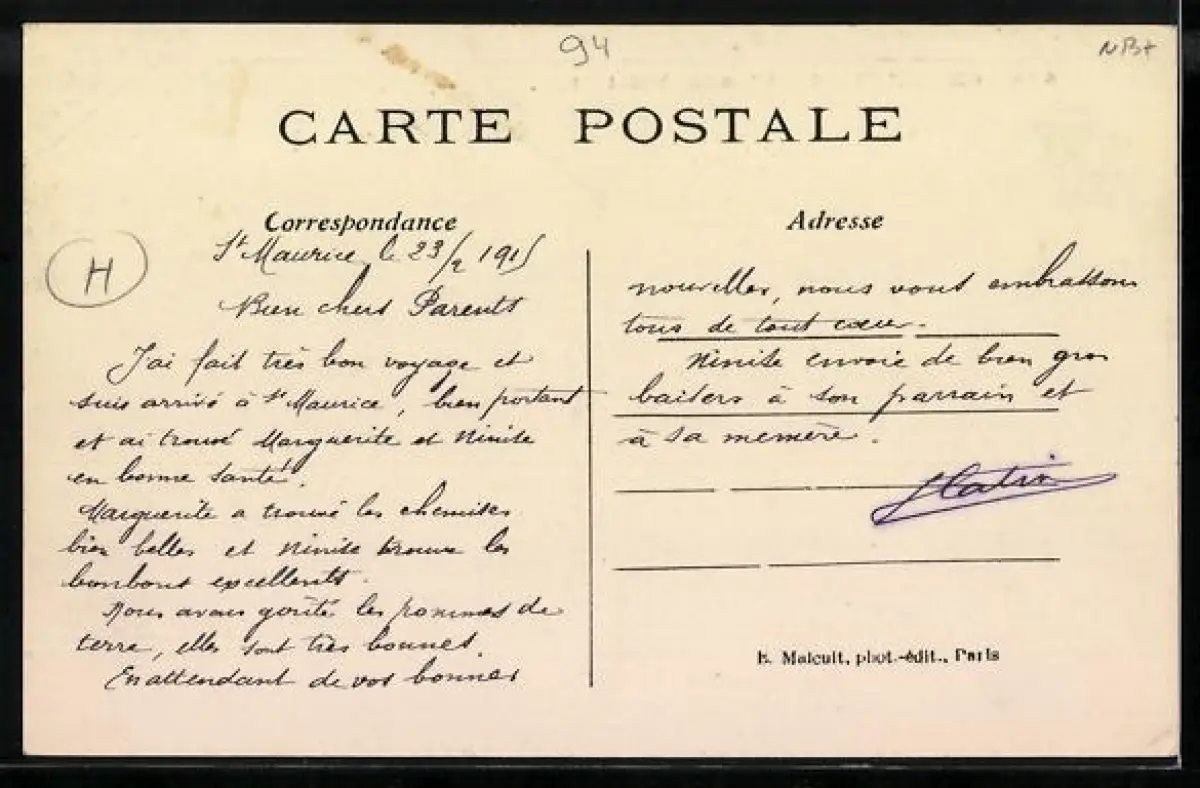 94
NB+
CARTE POSTALE
Correspondance
St Maurice, le 23/2 1915
H
Bien chers Parents
J'ai fait très bon voyage et
suis arrivé à St Maurice, bien portant
et ai trouvé Marguerite et Ninise
en bonne santé.
Marguerite a trouvé les chemises
bien belles et Ninise trouve les
bonbons excellents.
Nous avons goûté les pommes de
terre, elles sont très bonnes.
En attendant de vos bonnes
Adresse
nouvelles, nous vous embrassons
tous de tout cœur.
Ninise envoie de bien gros
baisers à son parrain et
à sa mémère.
E. Malcuit, phot.-édit., Paris